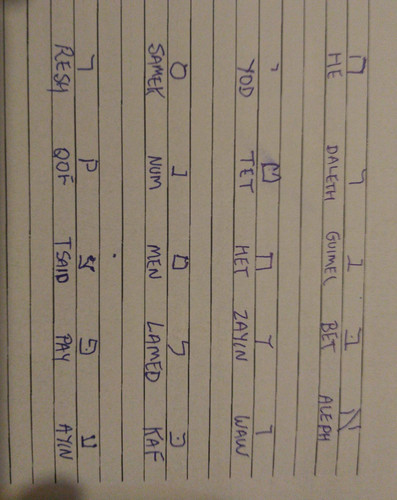 א ב ג ד ה
HE DALETH GUIMEL BET ALEPH
ו ז ח ט י
YOD TET HET ZAYIN WAW
כ ל ם נ ס
SAMEK NUM MEN LAMED KAF
ע פ צ ק ר
RESH QOF TSAID PAY AYIN